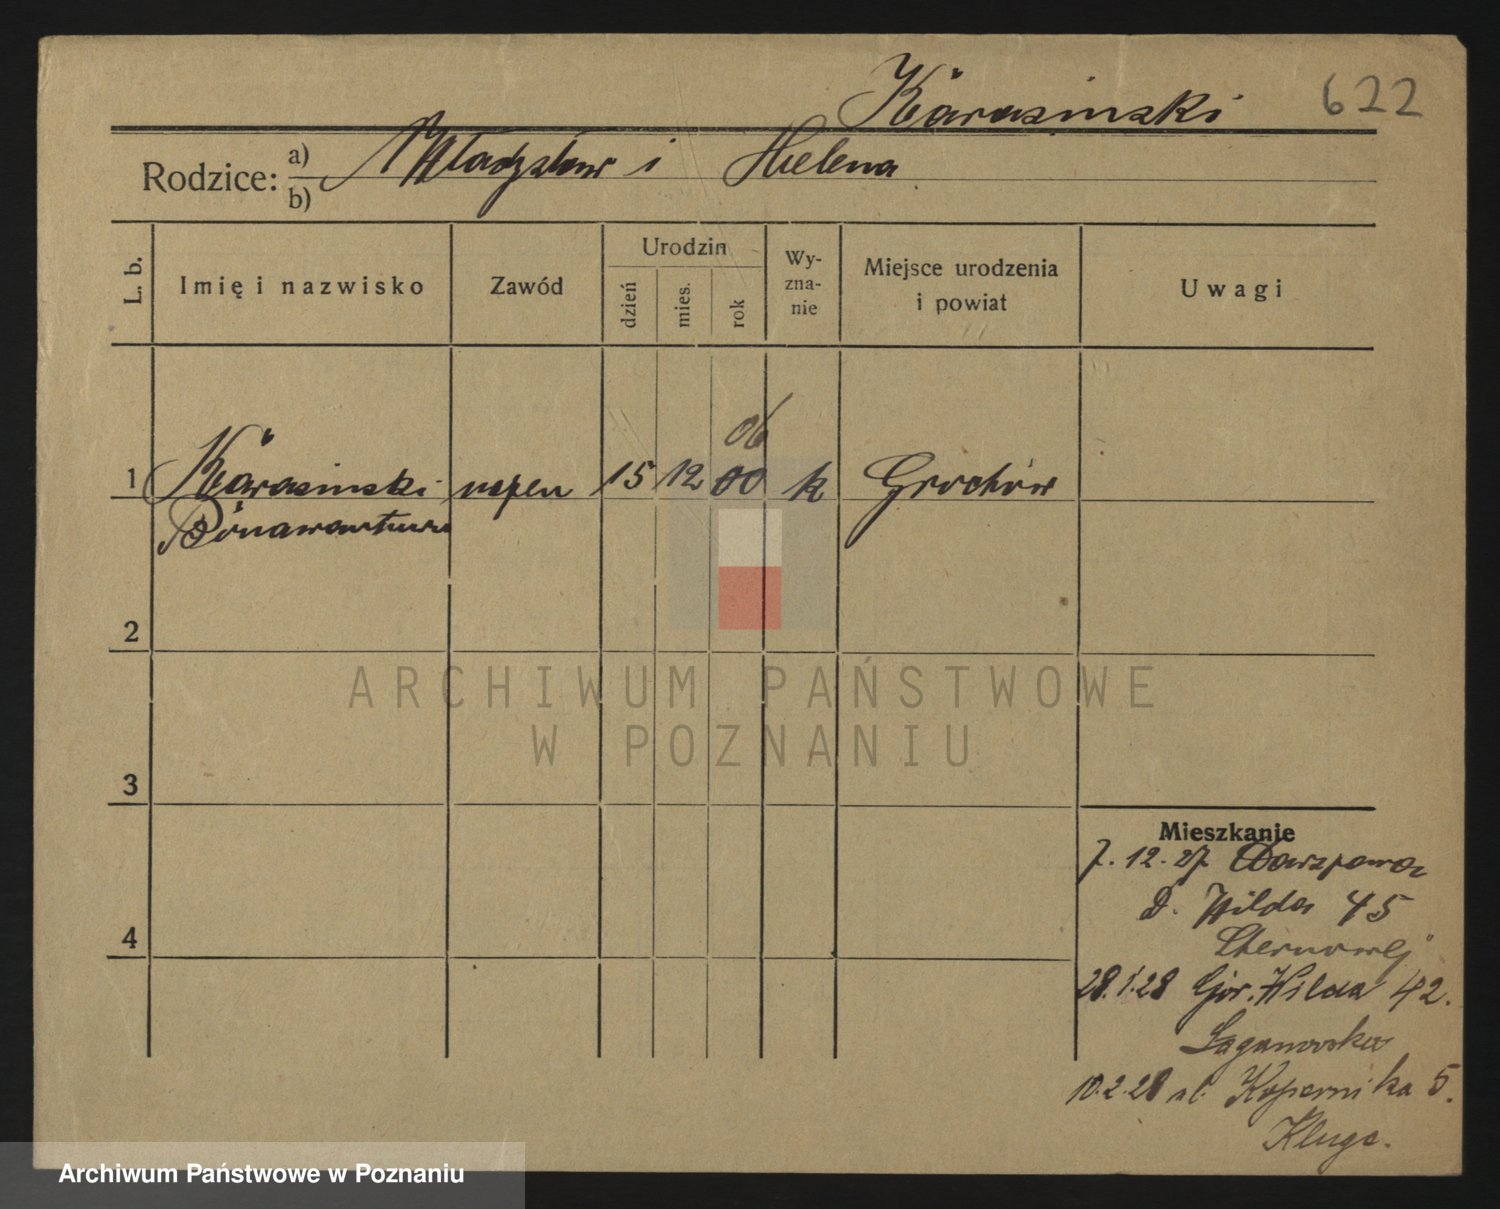 Karasinski 622
Rodzice: a) b) Władysław i Helena
L. b. Imię i nazwisko Zawód Urodzin dzień mies. rok Wyznanie Miejsce urodzenia i powiat Uwagi
06
1 Karasinski 15 12 00 k Grochów
Bonawentura
2
3
4
Mieszkanie
7. 12. 27 Warszawa
D. Wilda 45
28.1.28 Gór. Wilda 42.
Łaganowska
10.2.28 ul. Kopernika 5.
Kluge.
ARCHIWUM PAŃSTWOWE
W POZNANIU
Archiwum Państwowe w Poznaniu